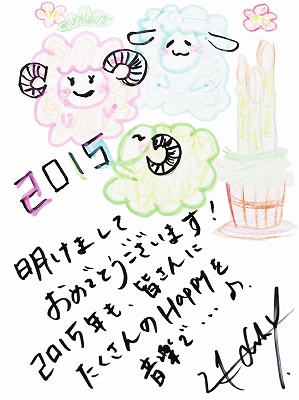 2015
明けまして
おめでとうございます!
2015年も、皆さんに
たくさんのHappyを
音楽で....♪